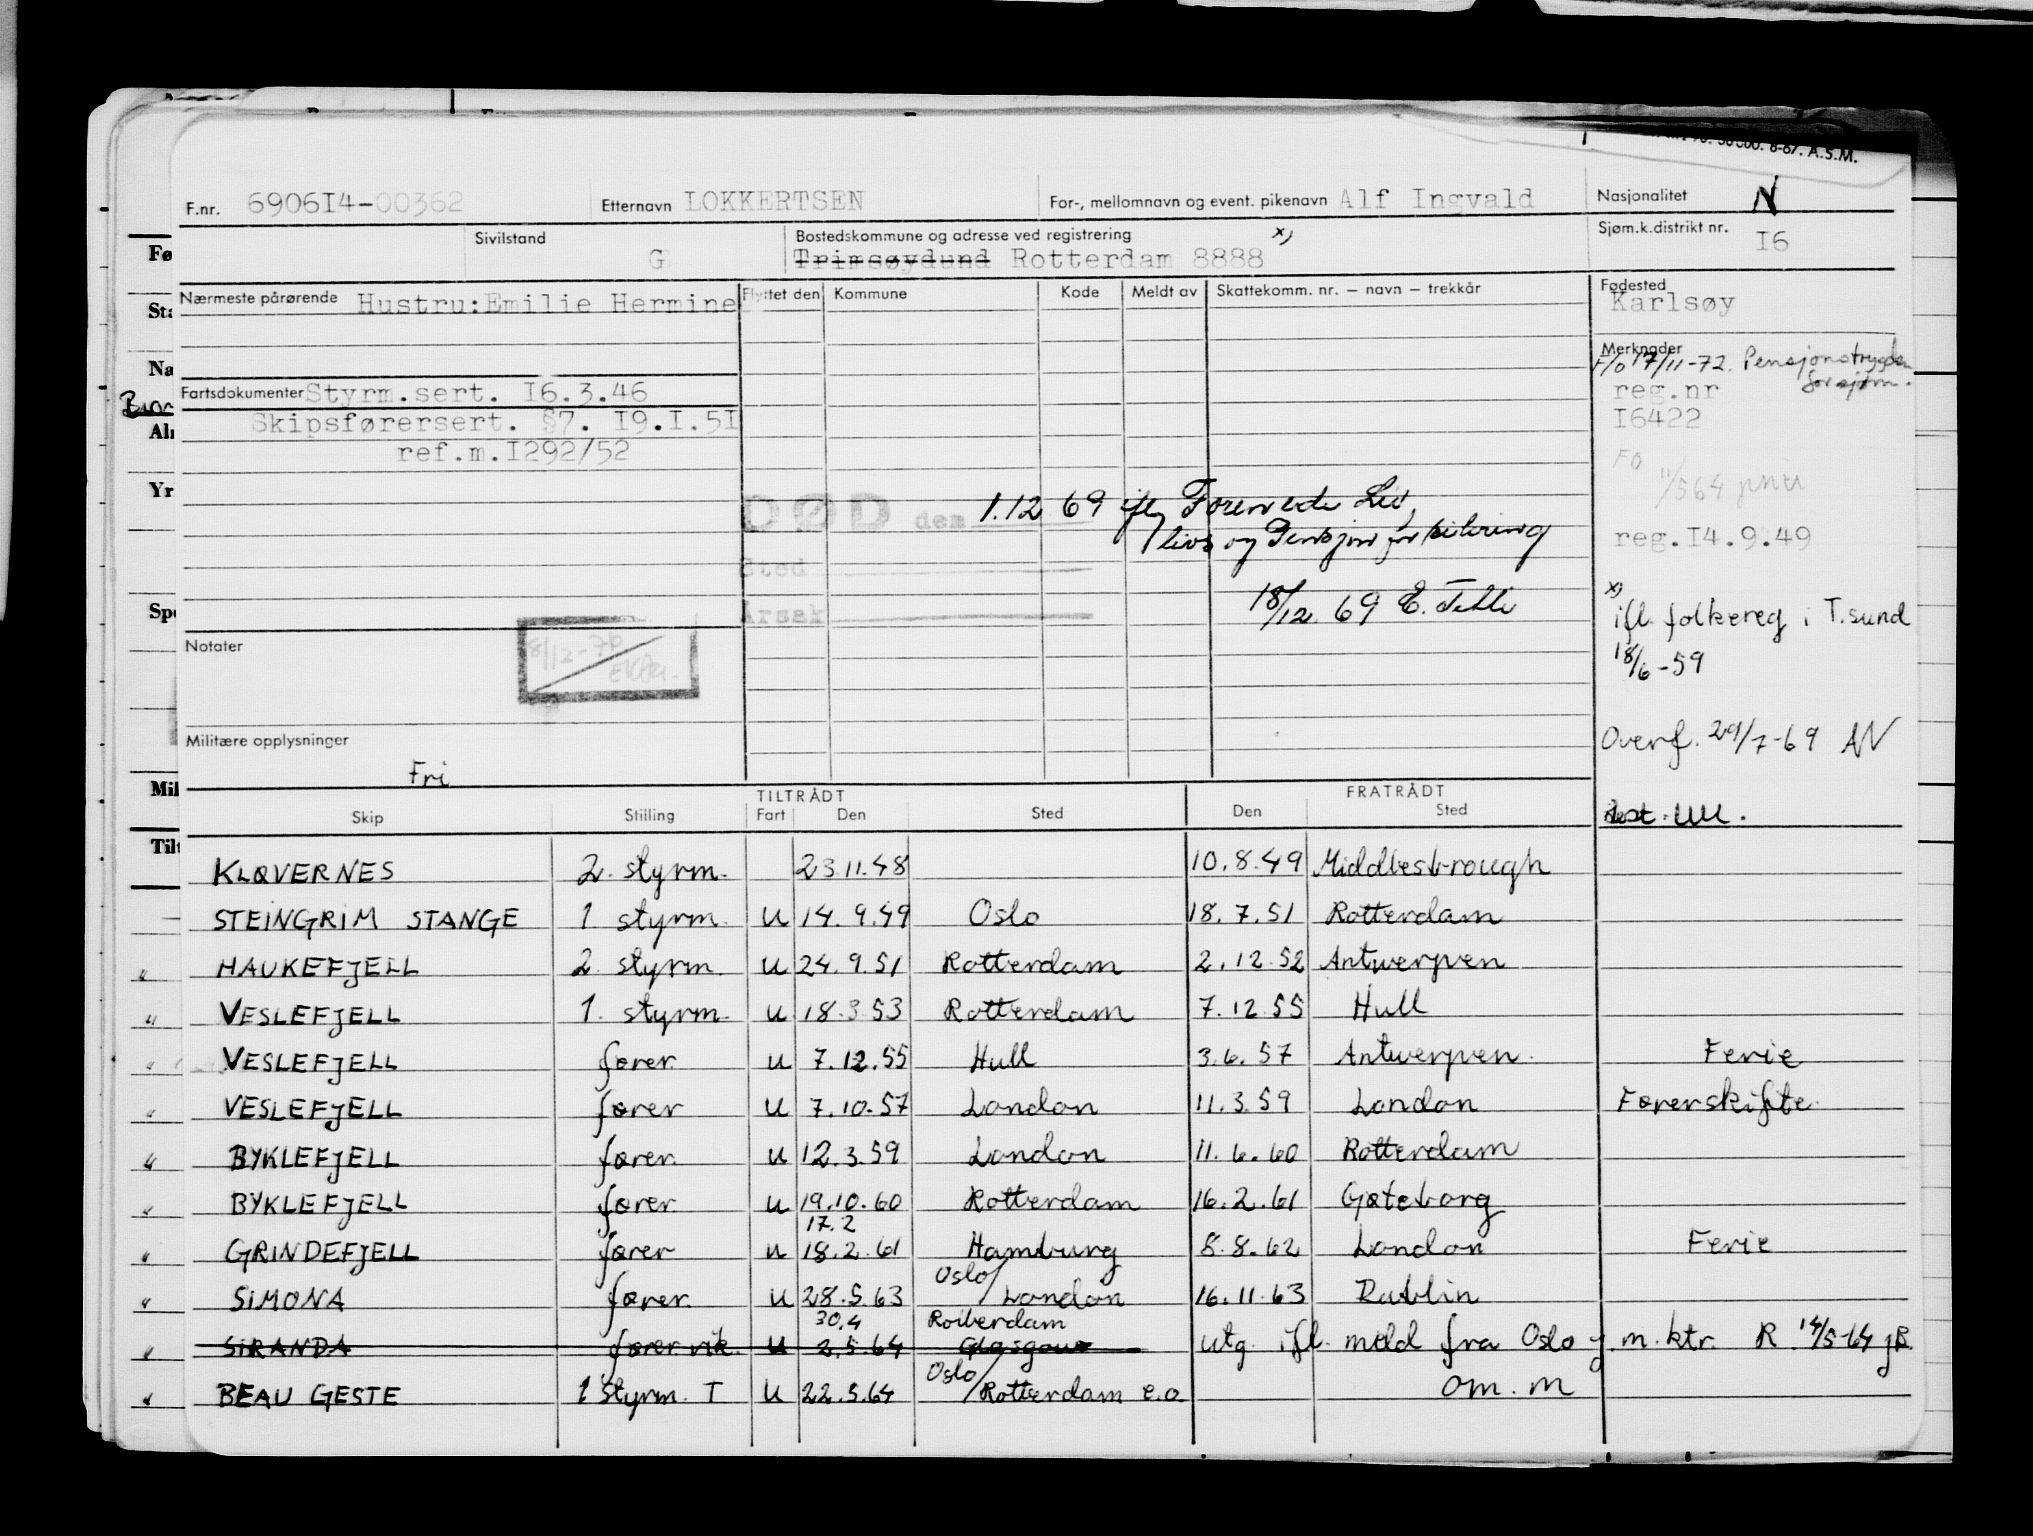 50 000. 8-67. A.S.M.
F.nr. 6906I4-00362 Etternavn LOKKERTSEN For-, mellomnavn og event. pikenavn Alf Ingvald Nasjonalitet N
Sivilstand G Bostedskommune og adresse ved registrering x) Sjøm.k.distrikt nr. I6
Trimsøydund Rotterdam 8888
Nærmeste pårørende Hustru:Emilie Hermine Flyttet den Kommune Kode Meldt av Skattekomm. nr. – navn – trekkår Fødested
Karlsøy
Merknader
F/o 17/11-72. Pensjonstrygden
for sjøm.
Fartsdokumenter Styrm.sert. I6.3.46 reg.nr
Skipsførersert. §7. I9.I.5I I6422
ref.m.I292/52
FO
11/564
DØD den 1.12 69 ifl Forenede Liv,
livs og Pensjons forsikring
reg.I4.9.49
Sted
18/12 69 E.
Årsak
x)
ifl. folkereg i T.sund
18/6-59
Notater
8/12-76
Overf. 29/7-69 AN
Militære opplysninger
Fri
TILTRÅDT FRATRÅDT
Skip Stilling Fart Den Sted Den Sted
KLØVERNES 2. styrm. 23.11.48 10.8.49 Middlesbrough
STEINGRIM STANGE 1 styrm. U 14.9.49 Oslo 18.7.51 Rotterdam
" HAUKEFJELL 2. styrm. U 24.9.51 Rotterdam 2.12.52 Antwerpen
" VESLEFJELL 1. styrm. U 18.3.53 Rotterdam 7.12.55 Hull
" VESLEFJELL fører U 7.12.55 Hull 3.6.57 Antwerpen. Ferie
" VESLEFJELL fører U 7.10.57 London 11.3.59 London Førerskifte.
" BYKLEFJELL fører. U 12.3.59 London 11.6.60 Rotterdam
" BYKLEFJELL fører U 19.10.60 Rotterdam 16.2.61 Gøteborg
17.2
" GRINDEFJELL fører U 18.2.61 Hamburg 8.8.62 London Ferie
Oslo/
" SIMONA fører. U 28.5.63 London 16.11.63 Dublin
30.4 Rotterdam
" SIRANDA fører vik. U 2.5.64 Glasgow utg. ifl. meld fra Oslo m.ktr. R. 14/5-64 JB.
Oslo/ om. m
" BEAU GESTE 1 styrm. T U 22.5.64 Rotterdam e.o.